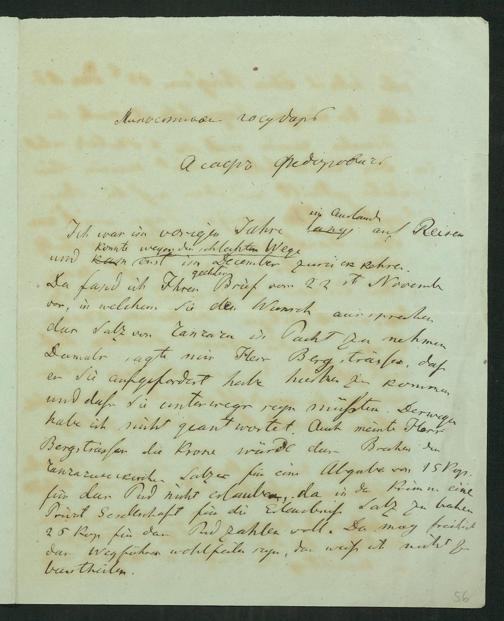 Милостивый государь
Асаеръ Федоровичъ
im Auslande
Ich war im vorigen Jahre lang auf Reisen
konnte wegen der schlechten Wege
und kam erst im December zurückkehren.
geehrten
Da fand ich Ihren Brief vom 22st November
vor, in welchem Sie den Wunsch aussprechen
das Salz von in Pacht zu nehmen
Damals sagte mir Herr Bergsträsser, daß
er Sie aufgefordert habe hierher zu kommen
und daß Sie unterwegs seyn müßten. Deswegen
habe ich nicht geantwortet. Auch meinte Herr
Bergsträsser die Krone würde das Brechen des
Salzes für eine Abgabe von 15 Kop.
für das Pud nicht erlauben, da in der Krimm eine
Privat Gesellschaft für die Erlaubniß Salz zu
25 Kop für das Pud zahlen soll. Da mag freilich
das Wegführen wohlfeiler seyn, das weiß ich nicht zu
beurtheilen.
56